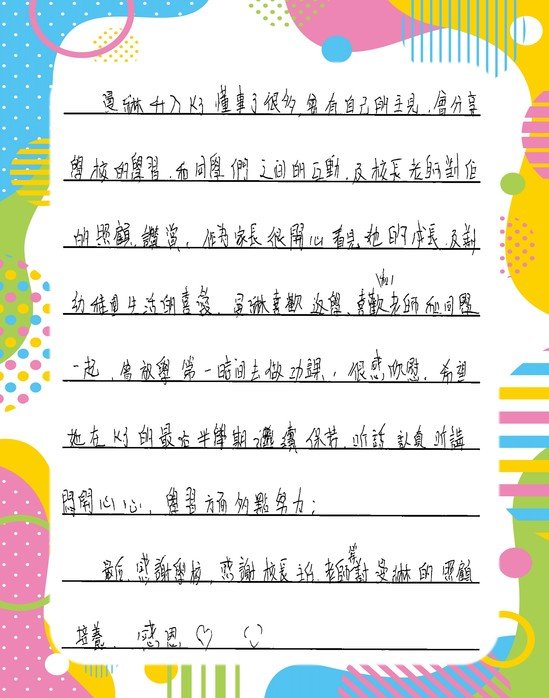 琳升入K3懂事了很多,會有自己的主見,會分享
學校的學習,和同學們之間的互動,及校長老師對佢
的照顧,讚賞,作為家長很開心看見她的成長,及對
幼稚園生活的喜愛,琳喜歡返學,喜歡和老師和同學
一起,會放學第一時間去做功課,很感欣慰,希望
她在K3的最后半學期繼續保持,听話,認真听講
開開心心,學習方面多點努力;
最后,感謝學校,感謝校長主任老師等對琳的照顧
培養,感恩♡